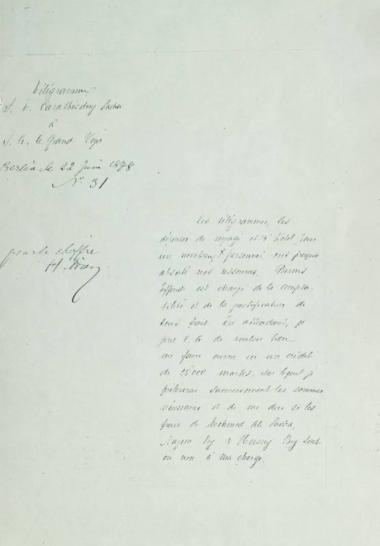 Télégramme
S. E. Carathéodory Pacha
à
S. A. le Grand Vizir
Berlin le 22 Juin 1878
N° 31
pour le chiffre
Les télégrammes, les
dépenses de voyage et d'hôtel pour
un nombreux personnel ont presque
absorbé nos ressources.
Effendi est chargé de la compta-
bilité et de la justification de
tous frais. En attendant, je
prie V. A. de vouloir bien
me faire ouvrir ici un crédit
de 25000 marks, sur lequel je
prélèverai successivement les sommes
nécessaires et de me dire si les
frais de Mehmed Ali Pacha,
Bey & Bey sont
ou non à ma charge.